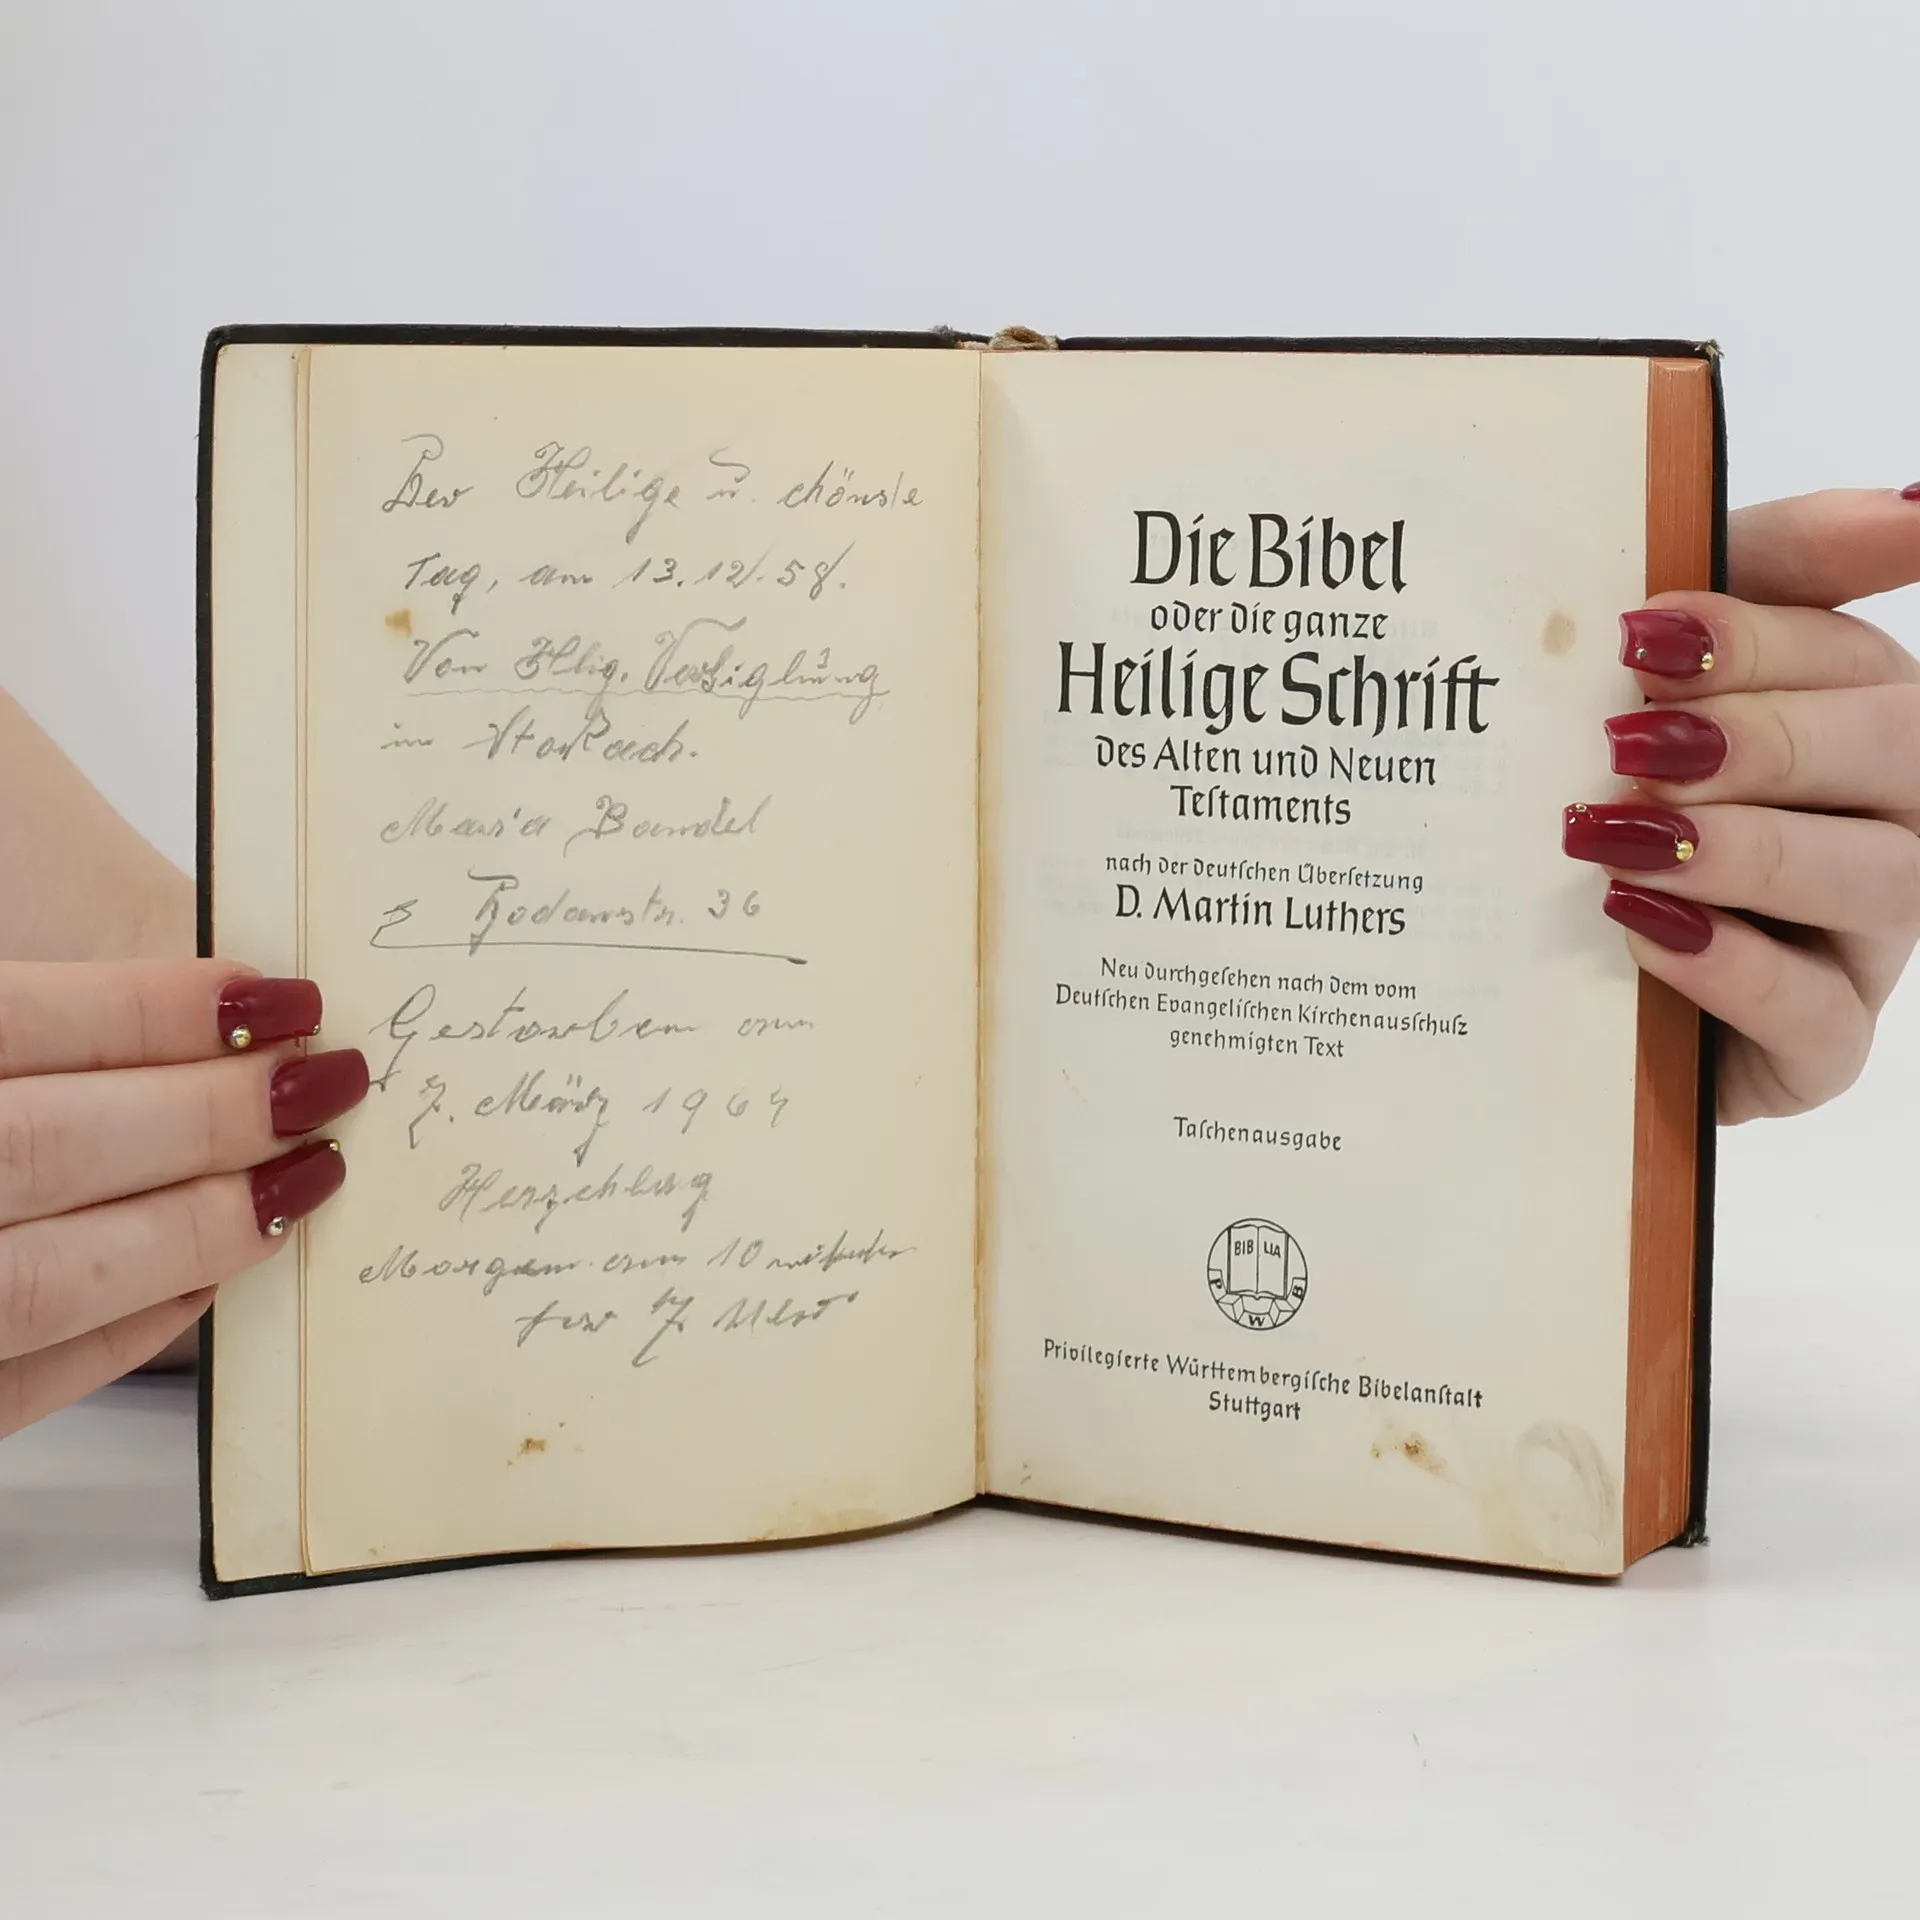 Der Heilige u. chönste
Tag, am 13.12.58.
Von Hlig.
in Stockach.
Maria Bandel
Rodanstr. 36
Gestorben am
7. März 1964
Herzchlag
Morgen am 10
7 Uhr
Die Bibel
oder die ganze
Heilige Schrift
des Alten und Neuen
Teſtaments
nach der deutſchen Überſetzung
D. Martin Luthers
Neu durchgeſehen nach dem vom
Deutſchen Evangeliſchen Kirchenausſchuſz
genehmigten Text
Taſchenausgabe
BIB LIA
P W B
Privilegierte Württembergiſche Bibelanſtalt
Stuttgart